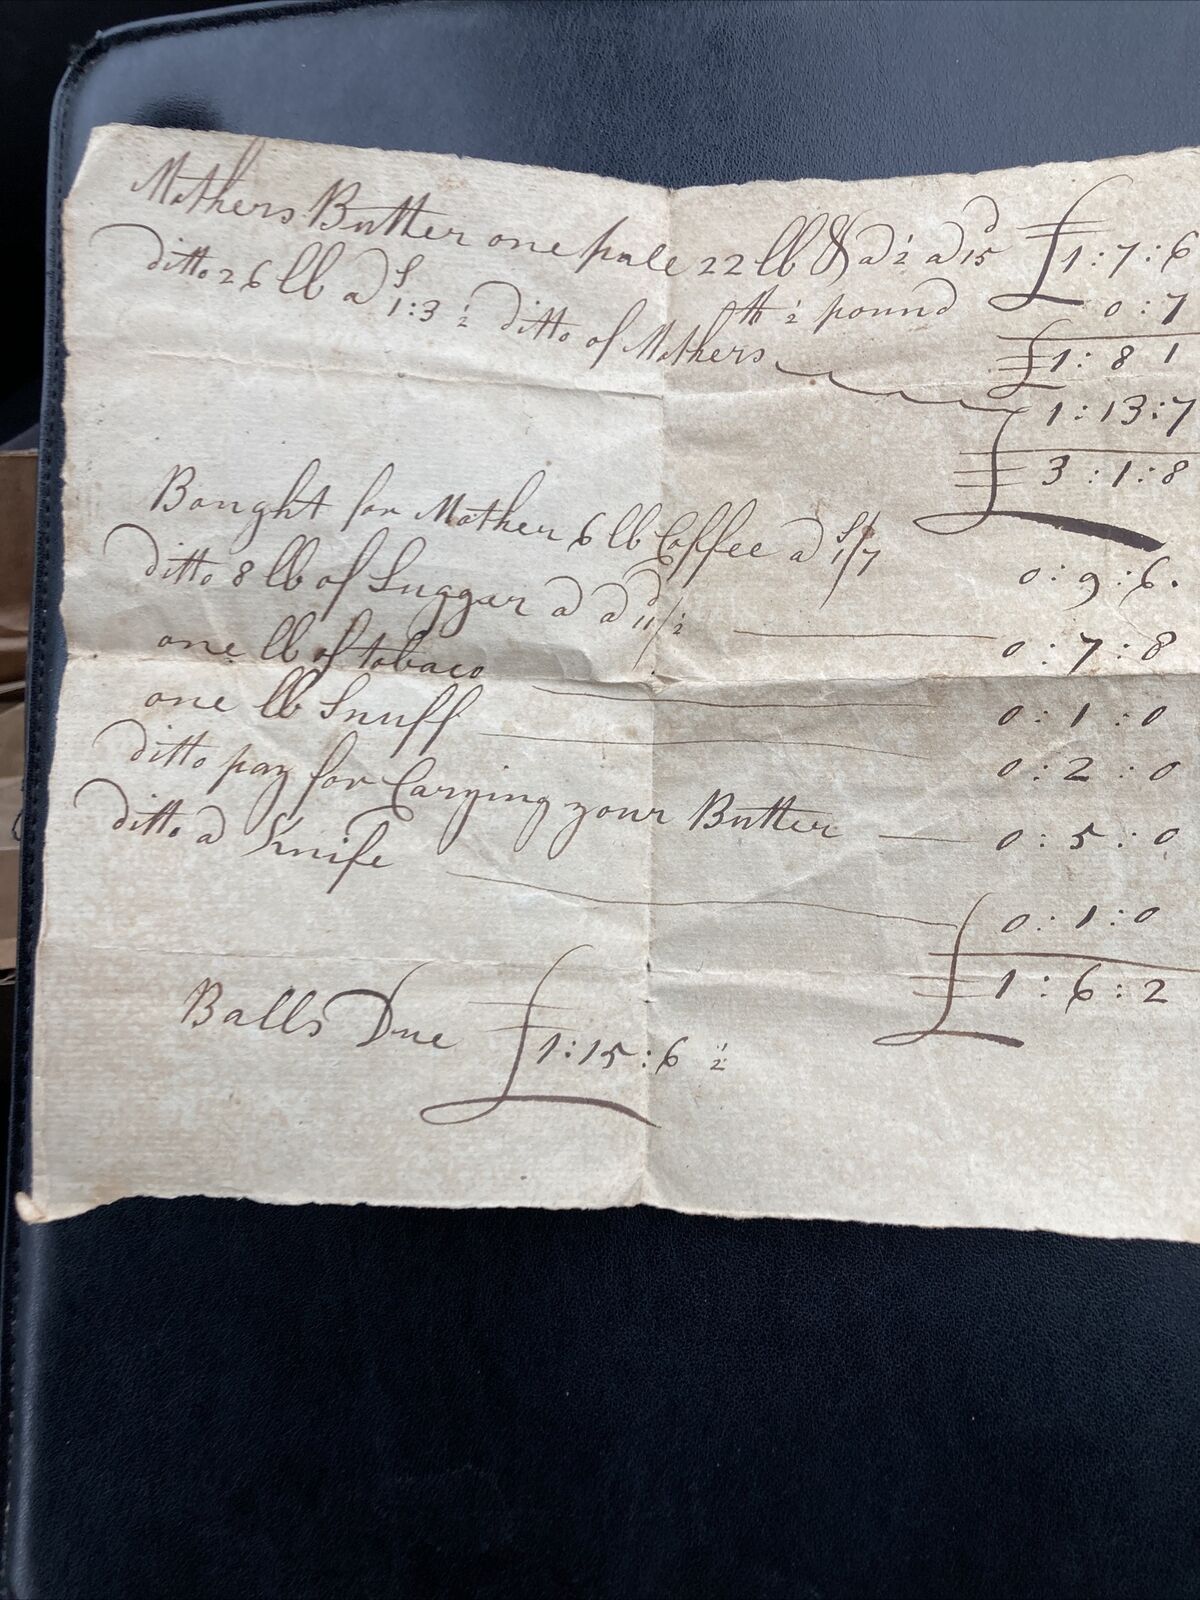 Mothers Butter one pale 22 lb & a ½ a 15 d £1:7:6
th ½ pound 0:7
£1:8 1
ditto 26 lb a s 1:3 ½ ditto of Mothers 1:13:7
£3:1:8
Bought for Mother 6 lb Coffee a s 1/7 0:9:6.
ditto 8 lb of Sugger a a d 11/½ 0:7:8
one lb of tobaco 0:1:0
one lb Snuff 0:2:0
ditto pay for Carying your Butter 0:5:0
ditto a Knife 0:1:0
£1:6:2
Balls Due £1:15:6 ½